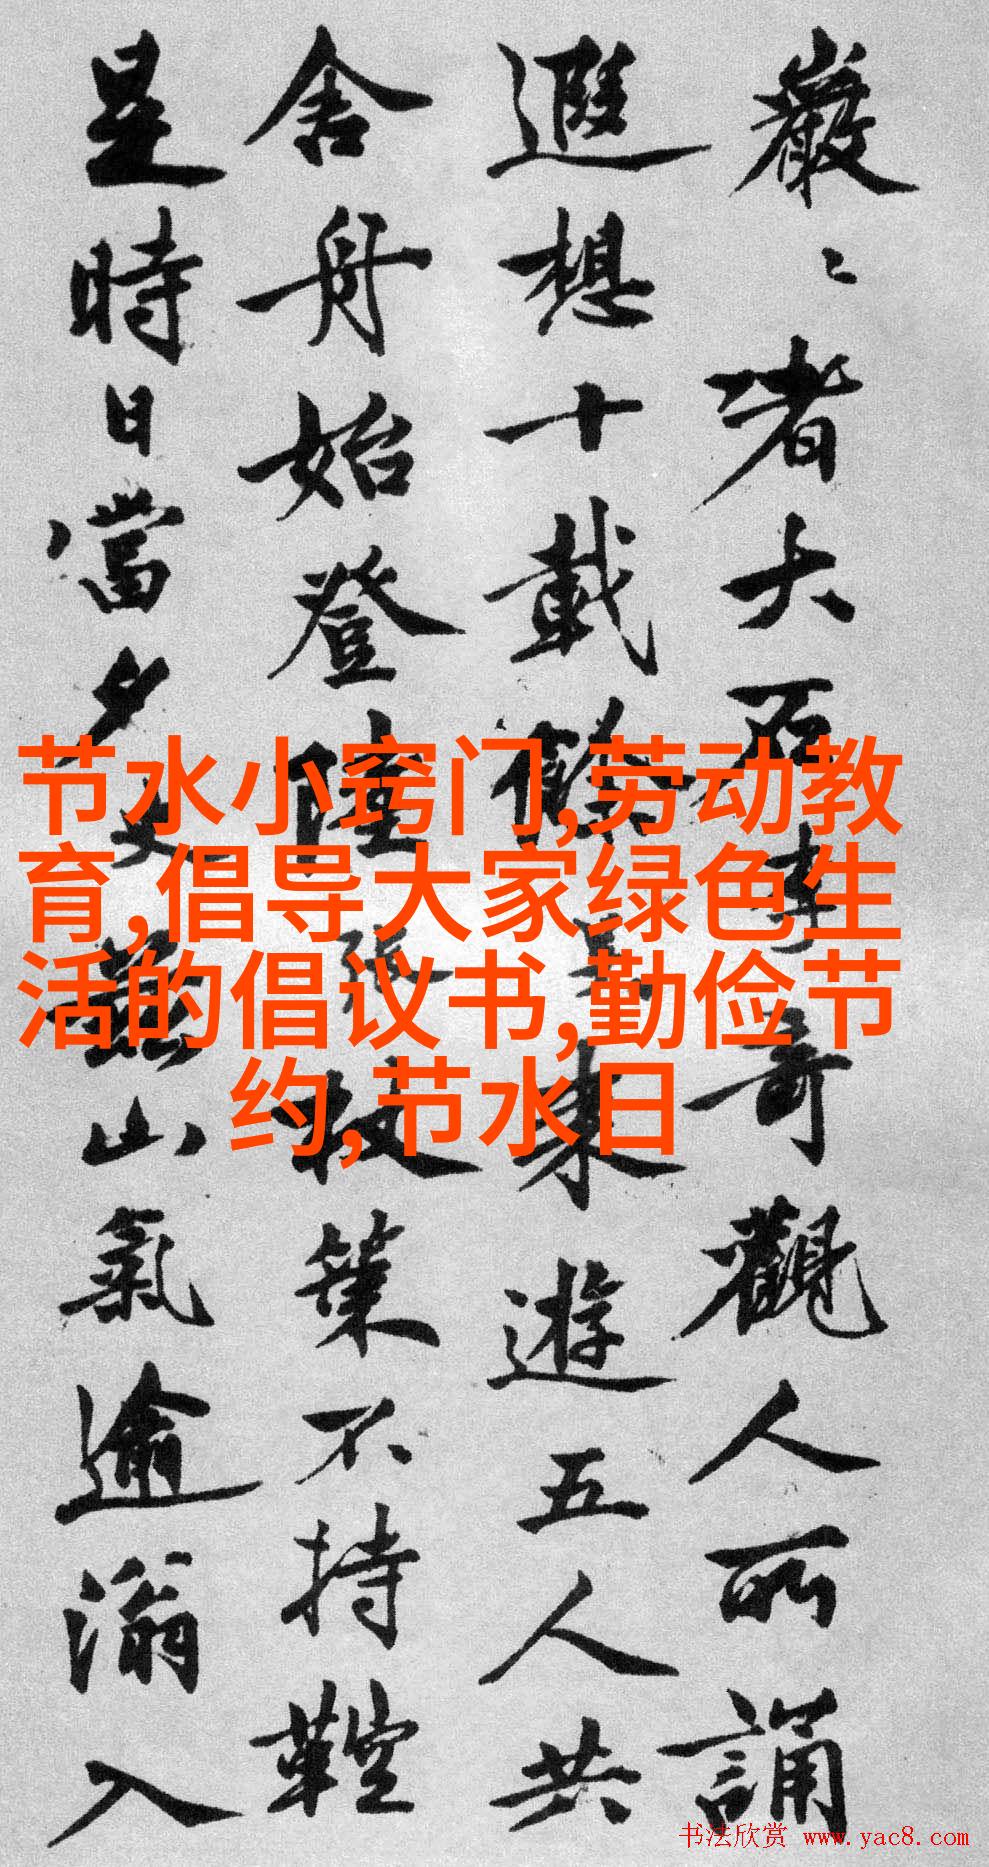 巖〻者大石奇觀人所誦
遐想十載餘東遊五人共
舍舟始登陸策不持鞚
是時日當夕山氣逾滃入
节水小窍门,劳动教
育,倡导大家绿色生
活的倡议书,勤俭节
约,节水日
书法欣赏 www.yac8.com